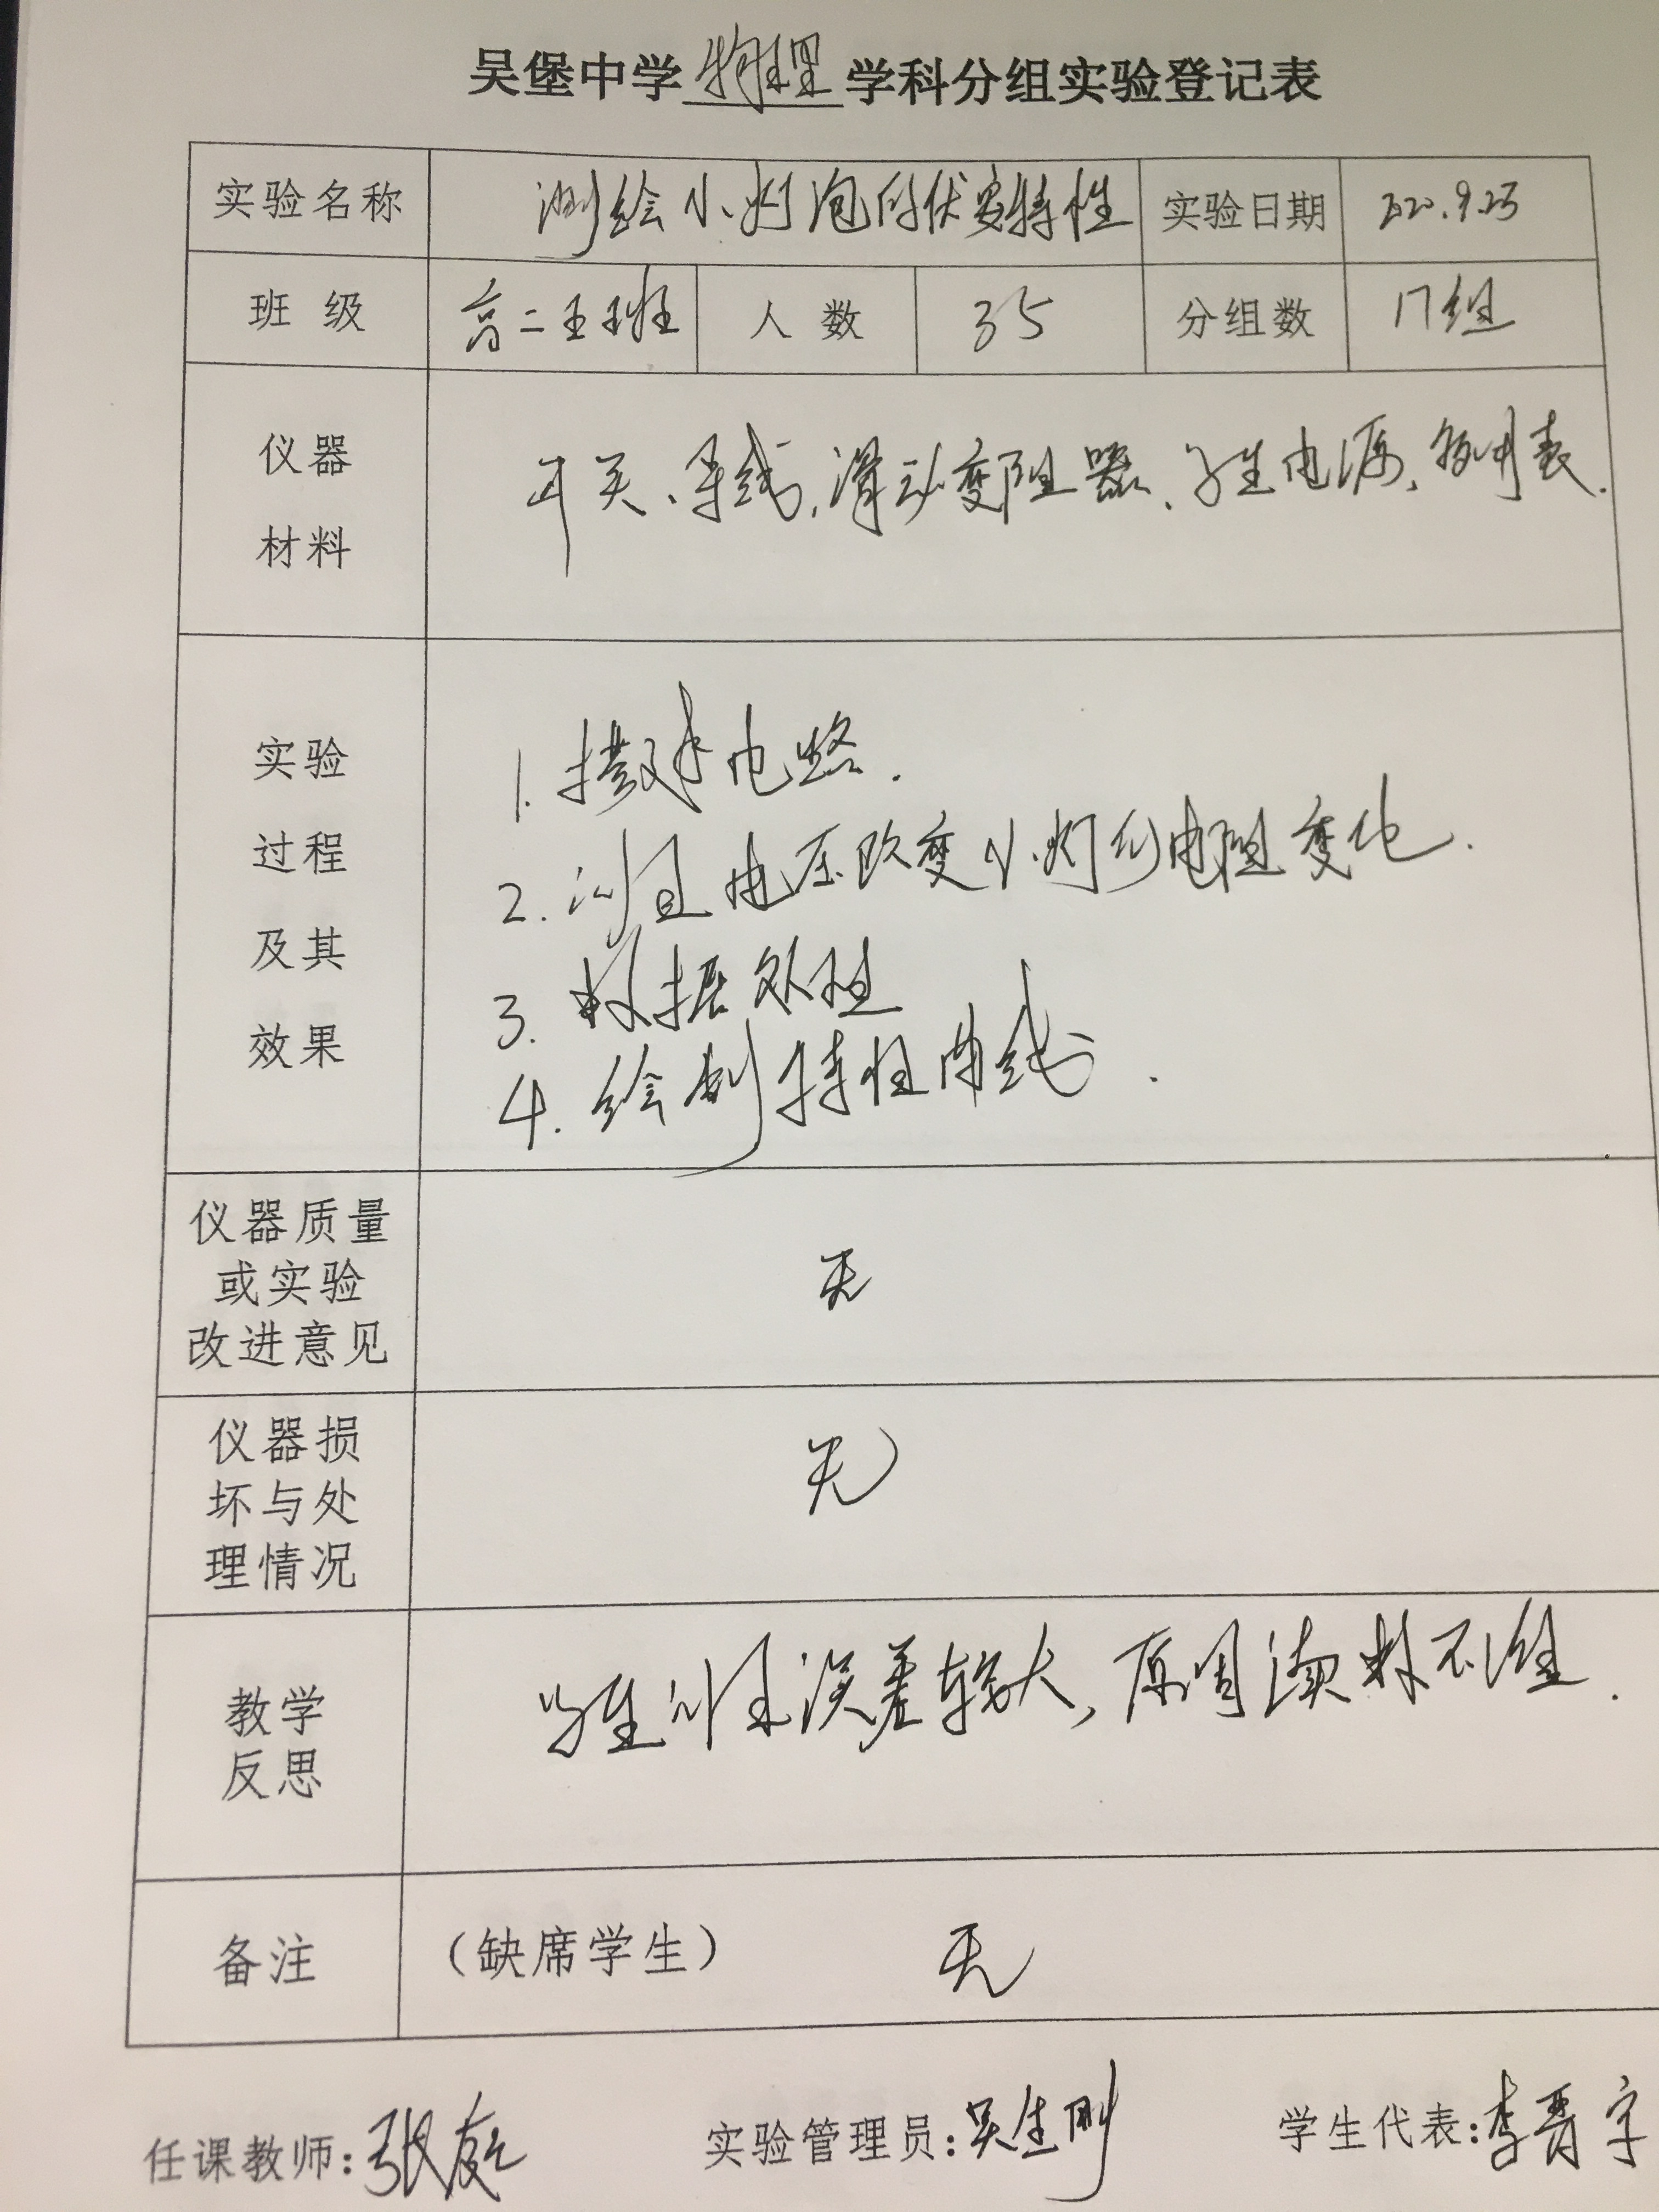 吴堡中学 物理 学科分组实验登记表
实验名称 测绘小灯泡的伏安特性 实验日期 2020.9.23
班 级 高二五班 人 数 35 分组数 17组
仪器
材料
开关、导线、滑动变阻器、学生电源、多用表.
实验
过程
及其
效果
1. 搭建电路.
2. 测量电压改变小灯的电阻变化.
3. 数据处理
4. 绘制特性曲线.
仪器质量
或实验
改进意见
无
仪器损
坏与处
理情况
无
教学
反思
学生测量误差较大,原因读数不准.
备注 (缺席学生) 无
任课教师: 张 实验管理员: 吴生刚 学生代表: 李晋宇